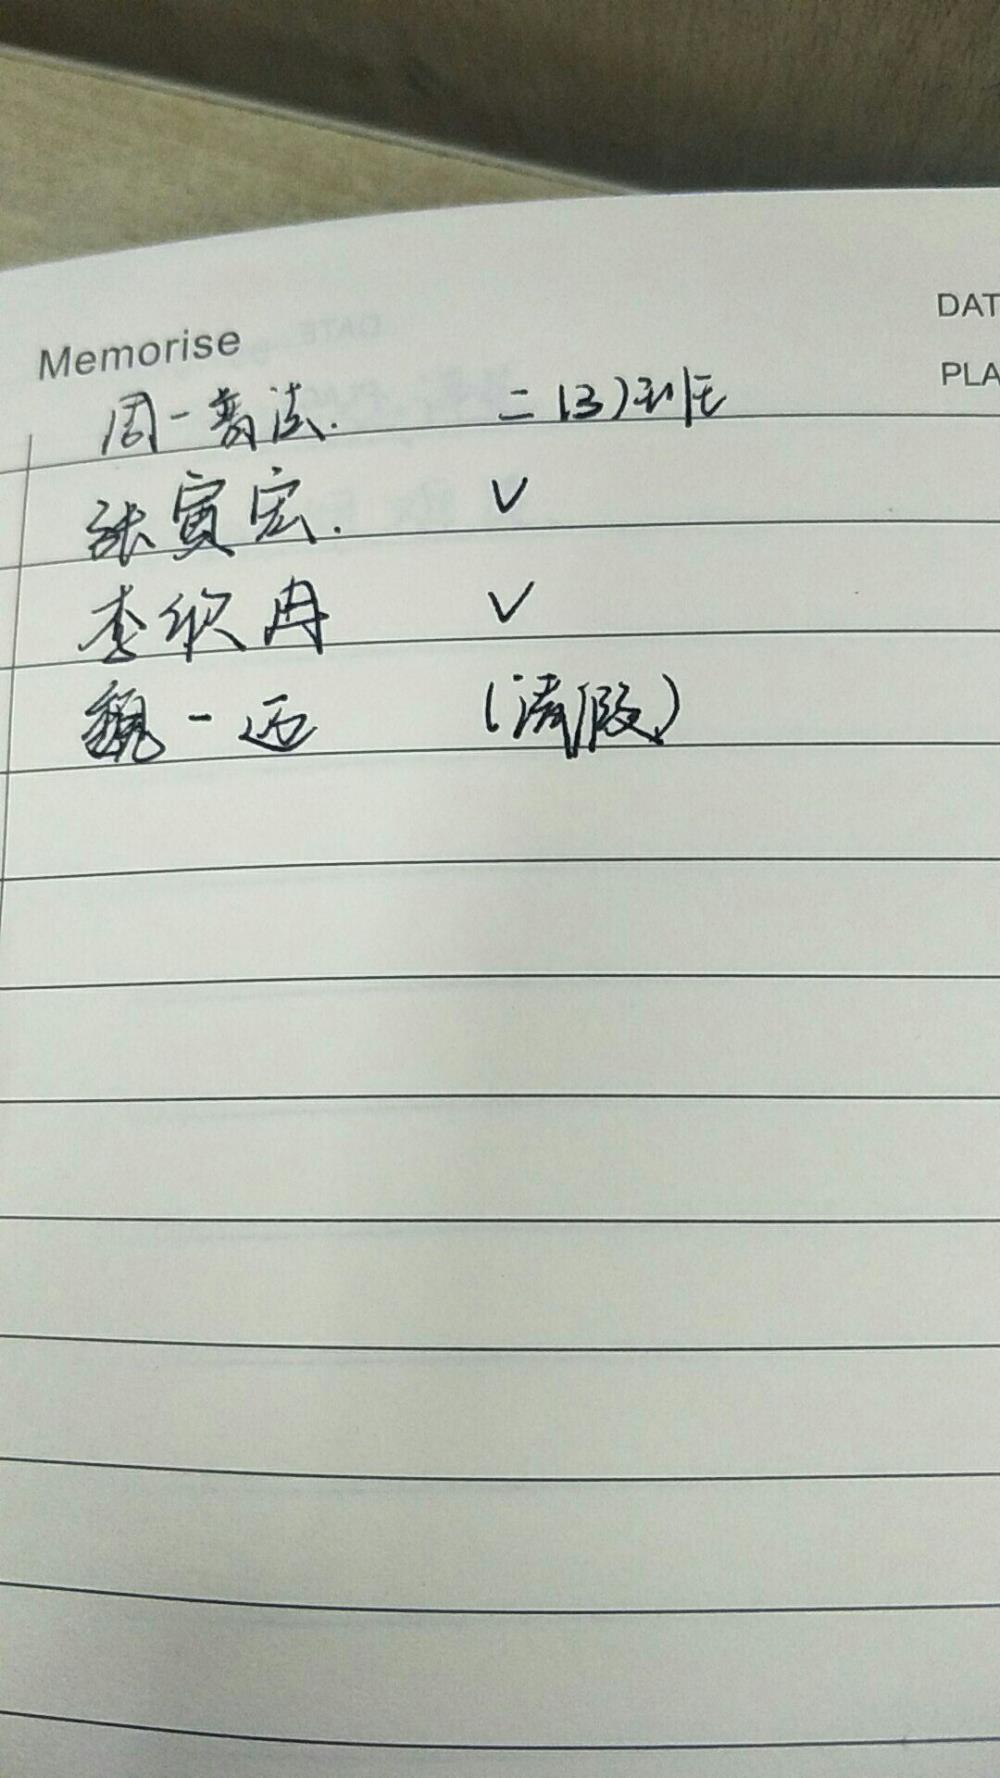 Memorise
DAT
PLA
周一普法. 二(3)班
张寅宏. ✓
李欣冉 ✓
魏一 (请假)